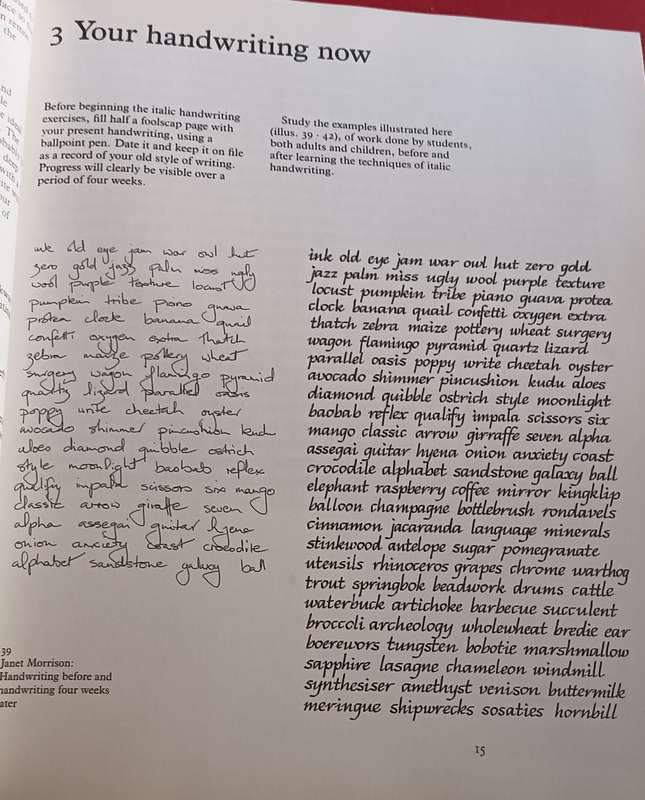 3 Your handwriting now
Before beginning the italic handwriting
exercises, fill half a foolscap page with
your present handwriting, using a
ballpoint pen. Date it and keep it on file
as a record of your old style of writing.
Progress will clearly be visible over a
period of four weeks.
Study the examples illustrated here
(illus. 39 - 42), of work done by students,
both adults and children, before and
after learning the techniques of italic
handwriting.
ink old eye jam war owl hut
zero gold jazz palm miss ugly
wool purple texture locust
pumpkin tribe piano guava
protea clock banana quail
confetti oxygen extra thatch
zebra maize pottery wheat
surgery wagon flamingo pyramid
quartz lizard parallel oasis
poppy write cheetah oyster
avocado shimmer pincushion kudu
aloes diamond quibble ostrich
style moonlight baobab reflex
qualify impala scissors six mango
classic arrow giraffe seven
alpha assegai guitar hyena
onion anxiety coast crocodile
alphabet sandstone galaxy ball
39
Janet Morrison:
Handwriting before and
handwriting four weeks
ater
ink old eye jam war owl hut zero gold
jazz palm miss ugly wool purple texture
locust pumpkin tribe piano guava protea
clock banana quail confetti oxygen extra
thatch zebra maize pottery wheat surgery
wagon flamingo pyramid quartz lizard
parallel oasis poppy write cheetah oyster
avocado shimmer pincushion kudu aloes
diamond quibble ostrich style moonlight
baobab reflex qualify impala scissors six
mango classic arrow girraffe seven alpha
assegai guitar hyena onion anxiety coast
crocodile alphabet sandstone galaxy ball
elephant raspberry coffee mirror kingklip
balloon champagne bottlebrush rondavels
cinnamon jacaranda language minerals
stinkwood antelope sugar pomegranate
utensils rhinoceros grapes chrome warthog
trout springbok beadwork drums cattle
waterbuck artichoke barbecue succulent
broccoli archeology wholewheat bredie ear
boerewors tungsten bobotie marshmallow
sapphire lasagne chameleon windmill
synthesiser amethyst venison buttermilk
meringue shipwrecks sosaties hornbill
15